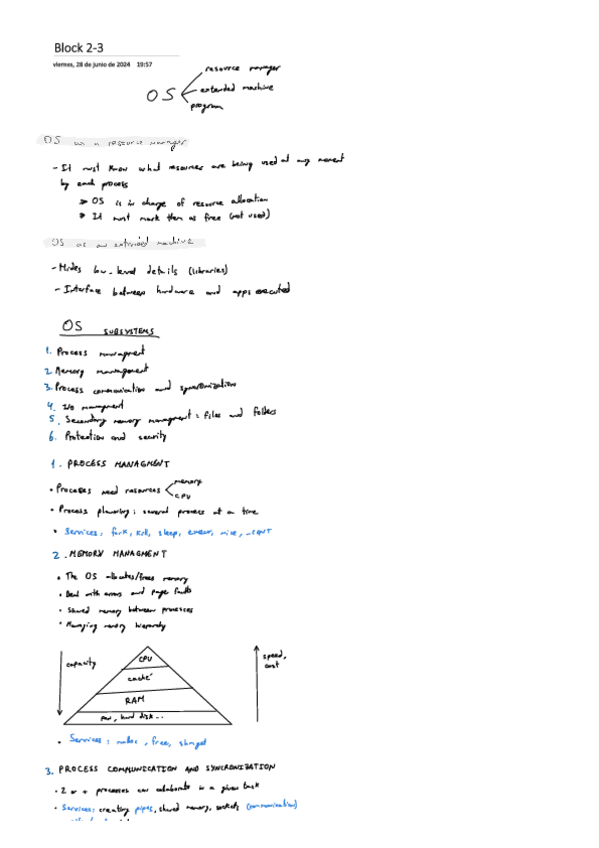 Block 2-3
viernes, 28 de junio de 2024 19:57
resource manager
OS extended machine
program
OS as a resource manager
- It must know what resources are being used at any moment
by each process
OS is in charge of resource allocation
It must mark them as free (not used)
OS as an extended machine
- Hides low-level details (libraries)
- Interface between hardware and apps executed
OS SUBSYSTEMS
1. Process managment
2. Memory management
3. Process communication and syncronization
4. I/O managment
5. Secondary memory managment: files and folders
6. Protection and security
1. PROCESS MANAGMENT
• Processes need resources memory
CPU
• Process planning: several process at a time
• Services: fork, kill, sleep, nice,
2. MEMORY MANAGMENT
• The OS allocates/frees memory
• Deal with errors and page faults
• Shared memory between processes
• Managing memory hierarchy
capacity
CPU
speed,
cost
caché
RAM
hard disk...
• Services: malloc, free, shmget
3. PROCESS COMMUNICATION AND SYNCRONIZATION
• 2 or + processes can collaborate in a given task
• Services: creating pipes, shared memory, sockets (communication)